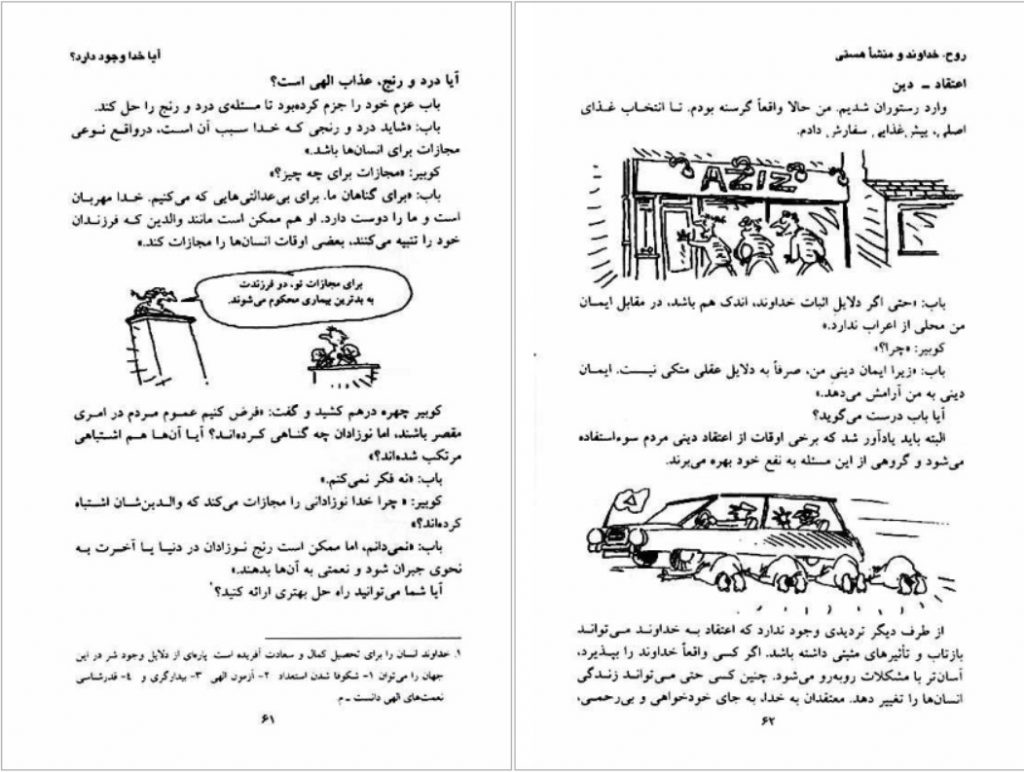 آیا خدا وجود دارد؟
آیا درد و رنج، عذاب الهی است؟
باب عزم خود را جزم کرده‌بود تا مسئله‌ی درد و رنج را حل کند.
باب: «شاید درد و رنجی که خدا سبب آن است، درواقع نوعی
مجازات برای انسان‌ها باشد.»
کوبیر: «مجازات برای چه چیز؟»
باب: «برای گناهان ما. برای بی‌عدالتی‌هایی که می‌کنیم. خدا مهربان
است و ما را دوست دارد. او هم ممکن است مانند والدین که فرزندان
خود را تنبیه می‌کنند، بعضی اوقات انسان‌ها را مجازات کند.»
برای مجازات تو، دو فرزندت
به بدترین بیماری محکوم می‌شوند.
کوبیر چهره درهم کشید و گفت: «فرض کنیم عموم مردم در امری
مقصر باشند، اما نوزادان چه گناهی کرده‌اند؟ آیا آن‌ها هم اشتباهی
مرتکب شده‌اند؟»
باب: «نه فکر نمی‌کنم.»
کوبیر: « چرا خدا نوزادانی را مجازات می‌کند که والدین‌شان اشتباه
کرده‌اند؟»
باب: «نمی‌دانم، اما ممکن است رنج نوزادان در دنیا یا آخرت به
نحوی جبران شود و نعمتی به آن‌ها بدهند.»
آیا شما می‌توانید راه حل بهتری ارائه کنید؟¹
۱. خداوند انسان را برای تحصیل کمال و سعادت آفریده است. پاره‌ای از دلایل وجود شر در این
جهان را می‌توان ۱- شکوفا شدن استعداد ۲- آزمون الهی ۳- بیدارگری و ۴- قدرشناسی
نعمت‌های الهی دانست ـ م.
۶۱
روح، خداوند و منشأ هستی
اعتقاد ـ دین
وارد رستوران شدیم. من حالا واقعاً گرسنه بودم. تا انتخاب غذای
اصلی، پیش‌غذایی سفارش دادم.
AZIZ
باب: «حتی اگر دلایل اثبات خداوند، اندک هم باشد، در مقابل ایمان
من محلی از اعراب ندارد.»
کوبیر: «چرا؟»
باب: «زیرا ایمان دینی من، صرفاً به دلایل عقلی متکی نیست. ایمان
دینی به من آرامش می‌دهد.»
آیا باب درست می‌گوید؟
البته باید یادآور شد که برخی اوقات از اعتقاد دینی مردم سوءاستفاده
می‌شود و گروهی از این مسئله به نفع خود بهره می‌برند.
از طرف دیگر تردیدی وجود ندارد که اعتقاد به خداوند می‌تواند
بازتاب و تأثیرهای مثبتی داشته باشد. اگر کسی واقعاً خداوند را بپذیرد،
آسان‌تر با مشکلات روبه‌رو می‌شود. چنین کسی حتی می‌تواند زندگی
انسان‌ها را تغییر دهد. معتقدان به خدا، به جای خودخواهی و بی‌رحمی،
۶۲